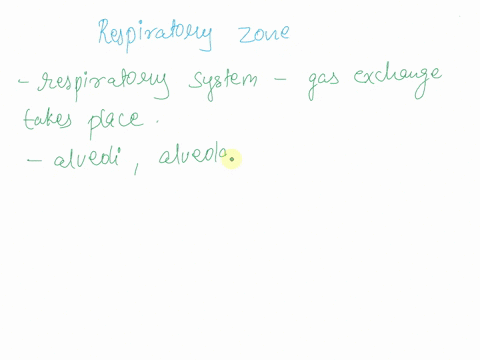 Respiratory zone
- respiratory system - gas exchange
takes place.
- alveoli, alveola